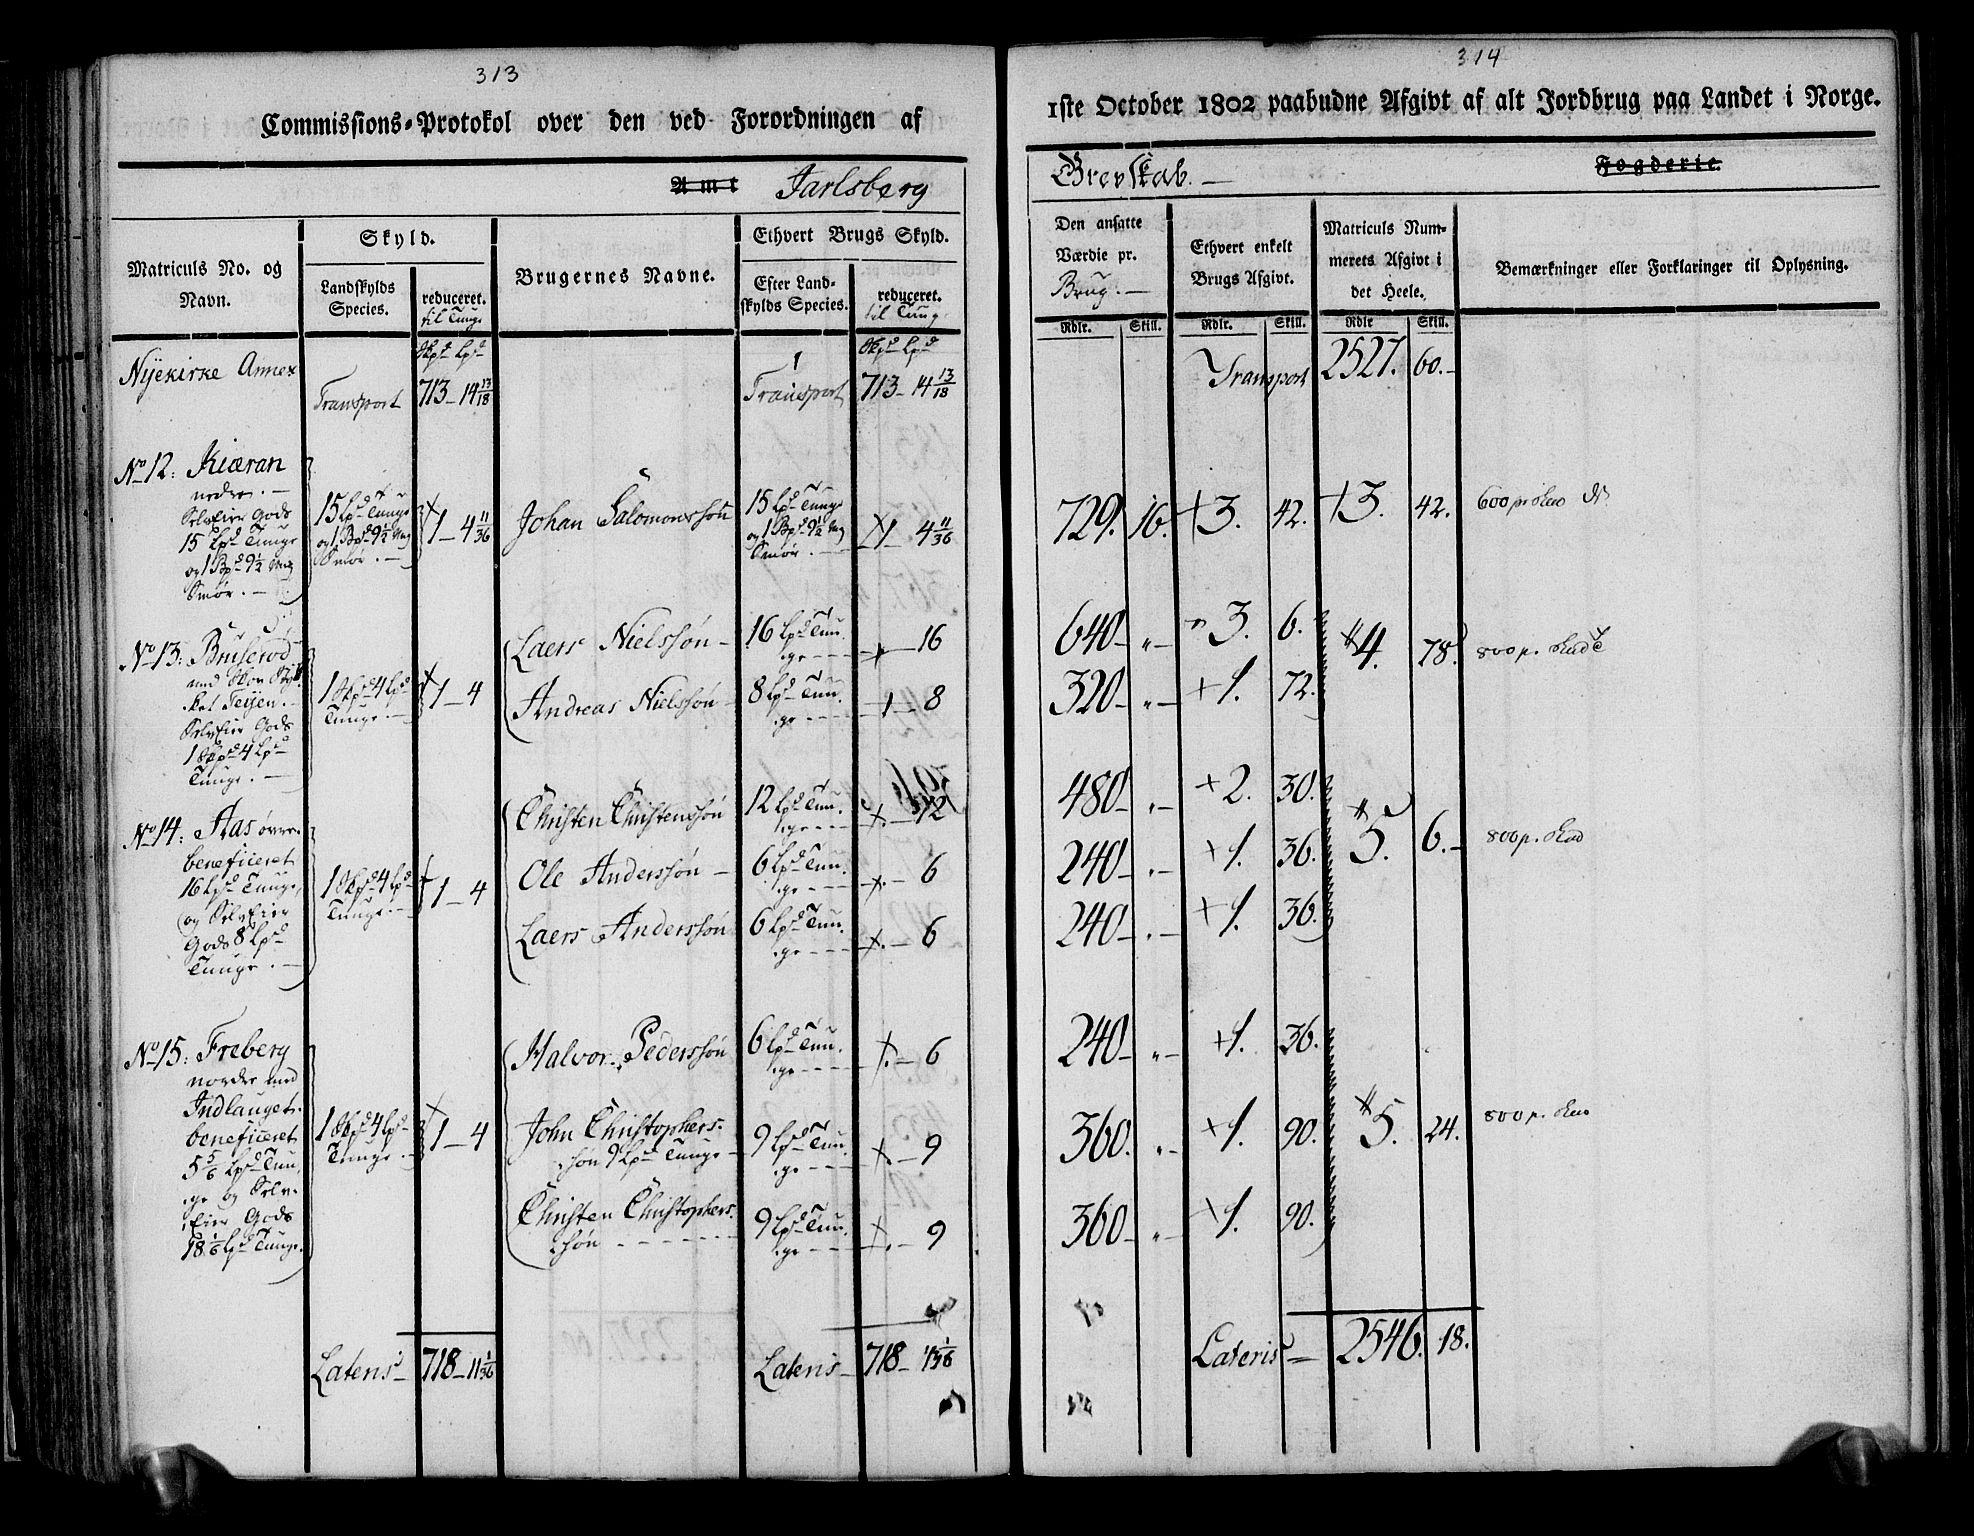 313
Commissions-Protokol over den ved Forordningen af
Amt Jarlsberg
Matriculs No. og Navn.
Skyld.
Landskylds Species.
reduceret.
til Tunge
Brugernes Navne.
Ethvert Brugs Skyld.
Efter Landskylds Species.
reduceret.
til Tung
Nÿekirke Annex
Transport
Skpd Lpd
713 – 14 13/18
1
Transport
Skpd Lpd
713 – 14 13/18
No 12: Kiæran
nedre. –
SelvEier Gods
15 Lpd Tunge
og 1 Bpd 9½ Mrg
Smør. –
15 Lpd Tunge
og 1 Bpd 9½ Mrg
Smør. –
1 – 4 11/36
Johan Salomonssøn
15 Lpd Tunge
og 1 Bpd 9½ Mrg
Smør. –
1 – 4 11/36
No 13: Bruserød
med Skov Styk
ket Teijen. –
SelvEier Gods
1 Skpd 4 Lpd
Tunge. –
1 Skpd 4 Lpd
Tunge. –
1 – 4
Laers Nielssøn –
16 Lpd Tun
ge – – –
– 16
Andreas Nielssøn –
8 Lpd Tun
ge – – –
– 8
No 14: Aas øvre.
beneficeret
16 Lpd Tunge,
og SelvEier
Gods 8 Lpd
Tunge. –
1 Skpd 4 Lpd
Tunge. –
1 – 4
Christen Christenssøn
12 Lpd Tun
ge – – –
– 12
Ole Anderssøn –
6 Lpd Tun
ge – – –
– 6
Laers Anderssøn
6 Lpd Tun
ge – – –
– 6
No 15: Freberg
nordre med
Indlauget.
beneficeret
5 5/6 Lpd Tun
ge og Selv
Eier Gods
18 1/6 Lpd Tunge.
1 Skpd 4 Lpd
Tunge. –
1 – 4
Halvor Pederssøn
6 Lpd Tun
ge – – –
– 6
John Christophers
søn 9 Lpd Tunge –
9 Lpd Tun
ge – – –
– 9
Christen Christophers
søn – – – –
9 Lpd Tun
ge – – –
– 9
Lateris –
718 – 11 1/36
Lateris –
718 –
314
1ste October 1802 paabudne Afgivt af alt Jordbrug paa Landet i Norge.
Grevskab. –
Fogderie.
Den ansatte Værdie pr.
Brug. –
Ethvert enkelt Brugs Afgivt.
Matriculs Nummerets Afgivt i det Heele.
Bemærkninger eller Forklaringer til Oplysning.
Rdlr. Skill. Rdlr. Skill. Rdlr Skill.
Transport 2527. 60. –
729. 16. + 3. 42. + 3. 42. 600 pr
640 – „ – 3. 6.
4. 78. 800 p.
320 – „ – + 1. 72.
480 – „ – + 2. 30.
5. 6. – 800 p.
240 – „ – + 1. 36.
240 – „ – + 1. 36.
240 – „ – + 1. 36.
360. „ – + 1. 90. 5. 24. 800 p.
360 – „ – + 1. 90.
Lateris – 2546. 18.